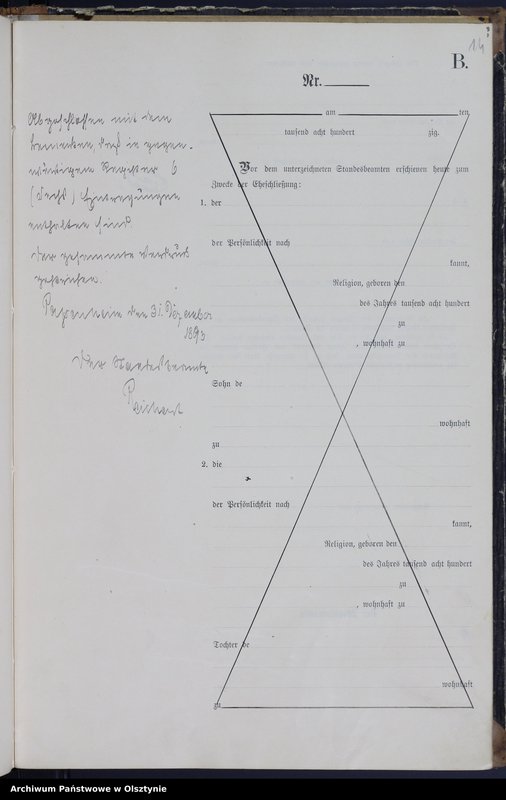 14
B.
Nr.
Abgeschlossen mit dem
Bemerken, daß in gegen-
wärtigem Register 6
(Sechs) Eintragungen
enthalten sind.
Der gesammte Vordruck
gestrichen.
den 31. Dezember
1893
Der Standesbeamte
am ten
tausend acht hundert zig.
Vor dem unterzeichneten Standesbeamten erschienen heute zum
Zwecke der Eheschließung:
1. der
der Persönlichkeit nach
kannt,
Religion, geboren den
des Jahres tausend acht hundert
zu
, wohnhaft zu
Sohn de
wohnhaft
zu
2. die
der Persönlichkeit nach
kannt,
Religion, geboren den
des Jahres tausend acht hundert
zu
, wohnhaft zu
Tochter de
wohnhaft
zu
Archiwum Państwowe w Olsztynie